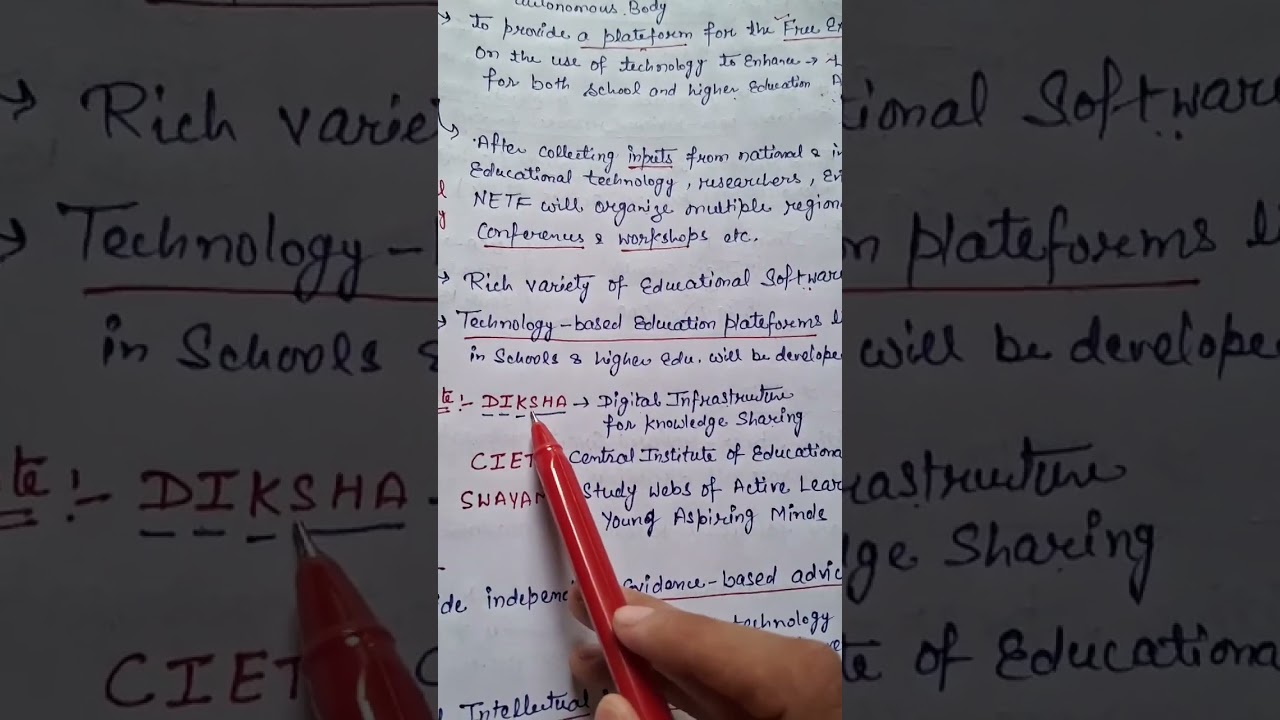 Autonomous Body
→ to provide a plateform for the Free Ex
On the use of technology to Enhance →
for both school and higher Education. A
After collecting inputs from national & in
Educational technology, researchers,
NETF will organize multiple region
Conferences & workshops etc.
→ Rich variety of Educational Software
→ Technology-based Education plateforms
in Schools & higher Edu. will be develope
te :- DIKSHA → Digital Infrastructure
for Knowledge Sharing
CIET Central Institute of Educationa
SWAYAM Study Webs of Active Lear
Young Aspiring Minds
ide indepen Evidence-based advic
technology
Intellectual